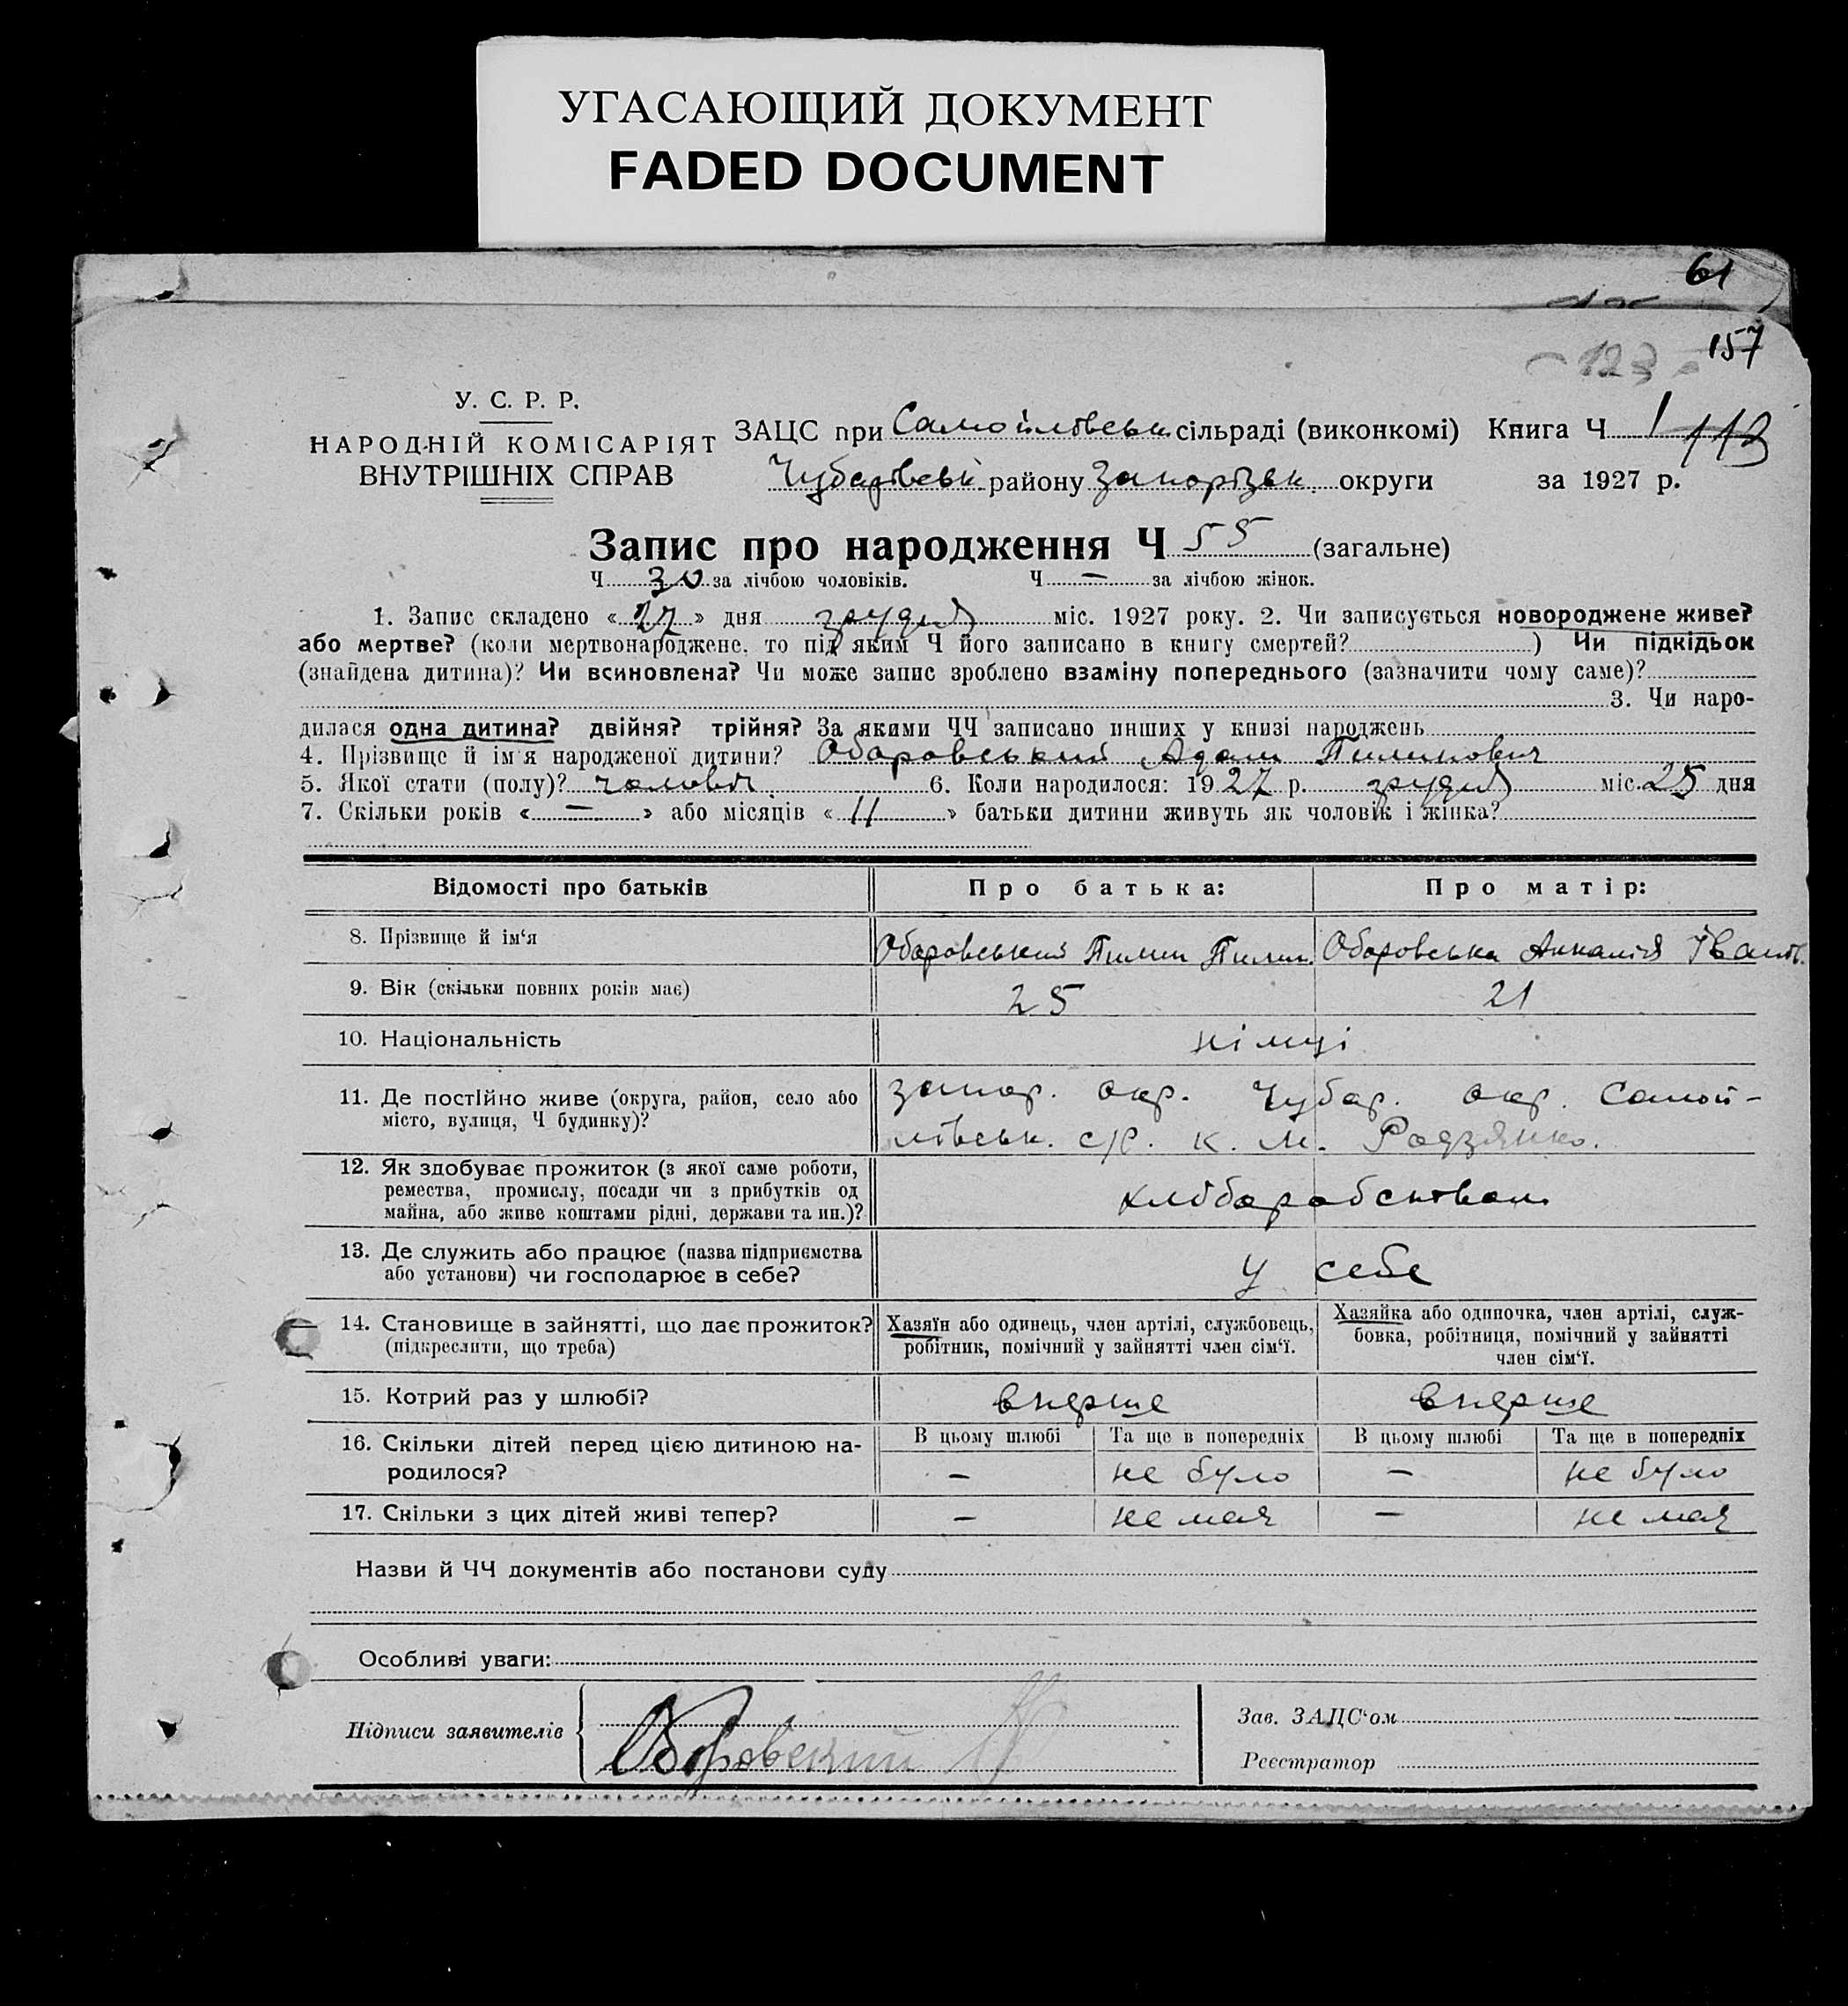 УГАСАЮЩИЙ ДОКУМЕНТ
FADED DOCUMENT
61
157
123
У. С. Р. Р.
НАРОДНІЙ КОМІСАРІЯТ
ВНУТРІШНІХ СПРАВ
ЗАЦС при Самойлівськ. сільраді (виконкомі) Книга Ч 1 113
Чубарівськ. району Запорізьк. округи за 1927 р.
Запис про народження Ч 55 (загальне)
Ч 30 за лічбою чоловіків. Ч — за лічбою жінок.
1. Запис складено « 27 » дня грудня міс. 1927 року. 2. Чи записується новороджене живе?
або мертве? (коли мертвонароджене, то під яким Ч його записано в книгу смертей? ) Чи підкідьок
(знайдена дитина)? Чи всиновлена? Чи може запис зроблено взаміну попереднього (зазначити чому саме)?
3. Чи наро-
дилася одна дитина? двійня? трійня? За якими ЧЧ записано инших у книзі народжень
4. Прізвище й ім'я народженої дитини? Оборовський Адам Пилипович
5. Якої стати (полу)? чоловіч. 6. Коли народилося: 1927 р. грудня міс. 25 дня
7. Скільки років « — » або місяців « 11 » батьки дитини живуть як чоловік і жінка?
Відомості про батьків Про батька: Про матір:
8. Прізвище й ім'я Оборовський Пилип Пилип. Оборовська Іванів.
9. Вік (скільки повних років має) 25 21
10. Національність німці
11. Де постійно живе (округа, район, село або
місто, вулиця, Ч будинку)?
запор. окр. Чубар. окр. Самой-
лівськ. с/р. к. м. Родзянко.
12. Як здобуває прожиток (з якої саме роботи,
ремества, промислу, посади чи з прибутків од
майна, або живе коштами рідні, держави та ин.)?
хліборобством
13. Де служить або працює (назва підприємства
або установи) чи господарює в себе?
у себе
14. Становище в зайнятті, що дає прожиток?
(підкреслити, що треба)
Хазяїн або одинець, член артілі, службовець,
робітник, помічний у зайнятті член сім'ї.
Хазяйка або одиночка, член артілі, служ-
бовка, робітниця, помічний у зайнятті
член сім'ї.
15. Котрий раз у шлюбі? вперше вперше
16. Скільки дітей перед цією дитиною на-
родилося?
В цьому шлюбі Та ще в попередніх В цьому шлюбі Та ще в попередніх
— не було — не було
17. Скільки з цих дітей живі тепер? — не має — не має
Назви й ЧЧ документів або постанови суду
Особливі уваги:
Підписи заявителів
Оборовский
Зав. ЗАЦС'ом
Реєстратор